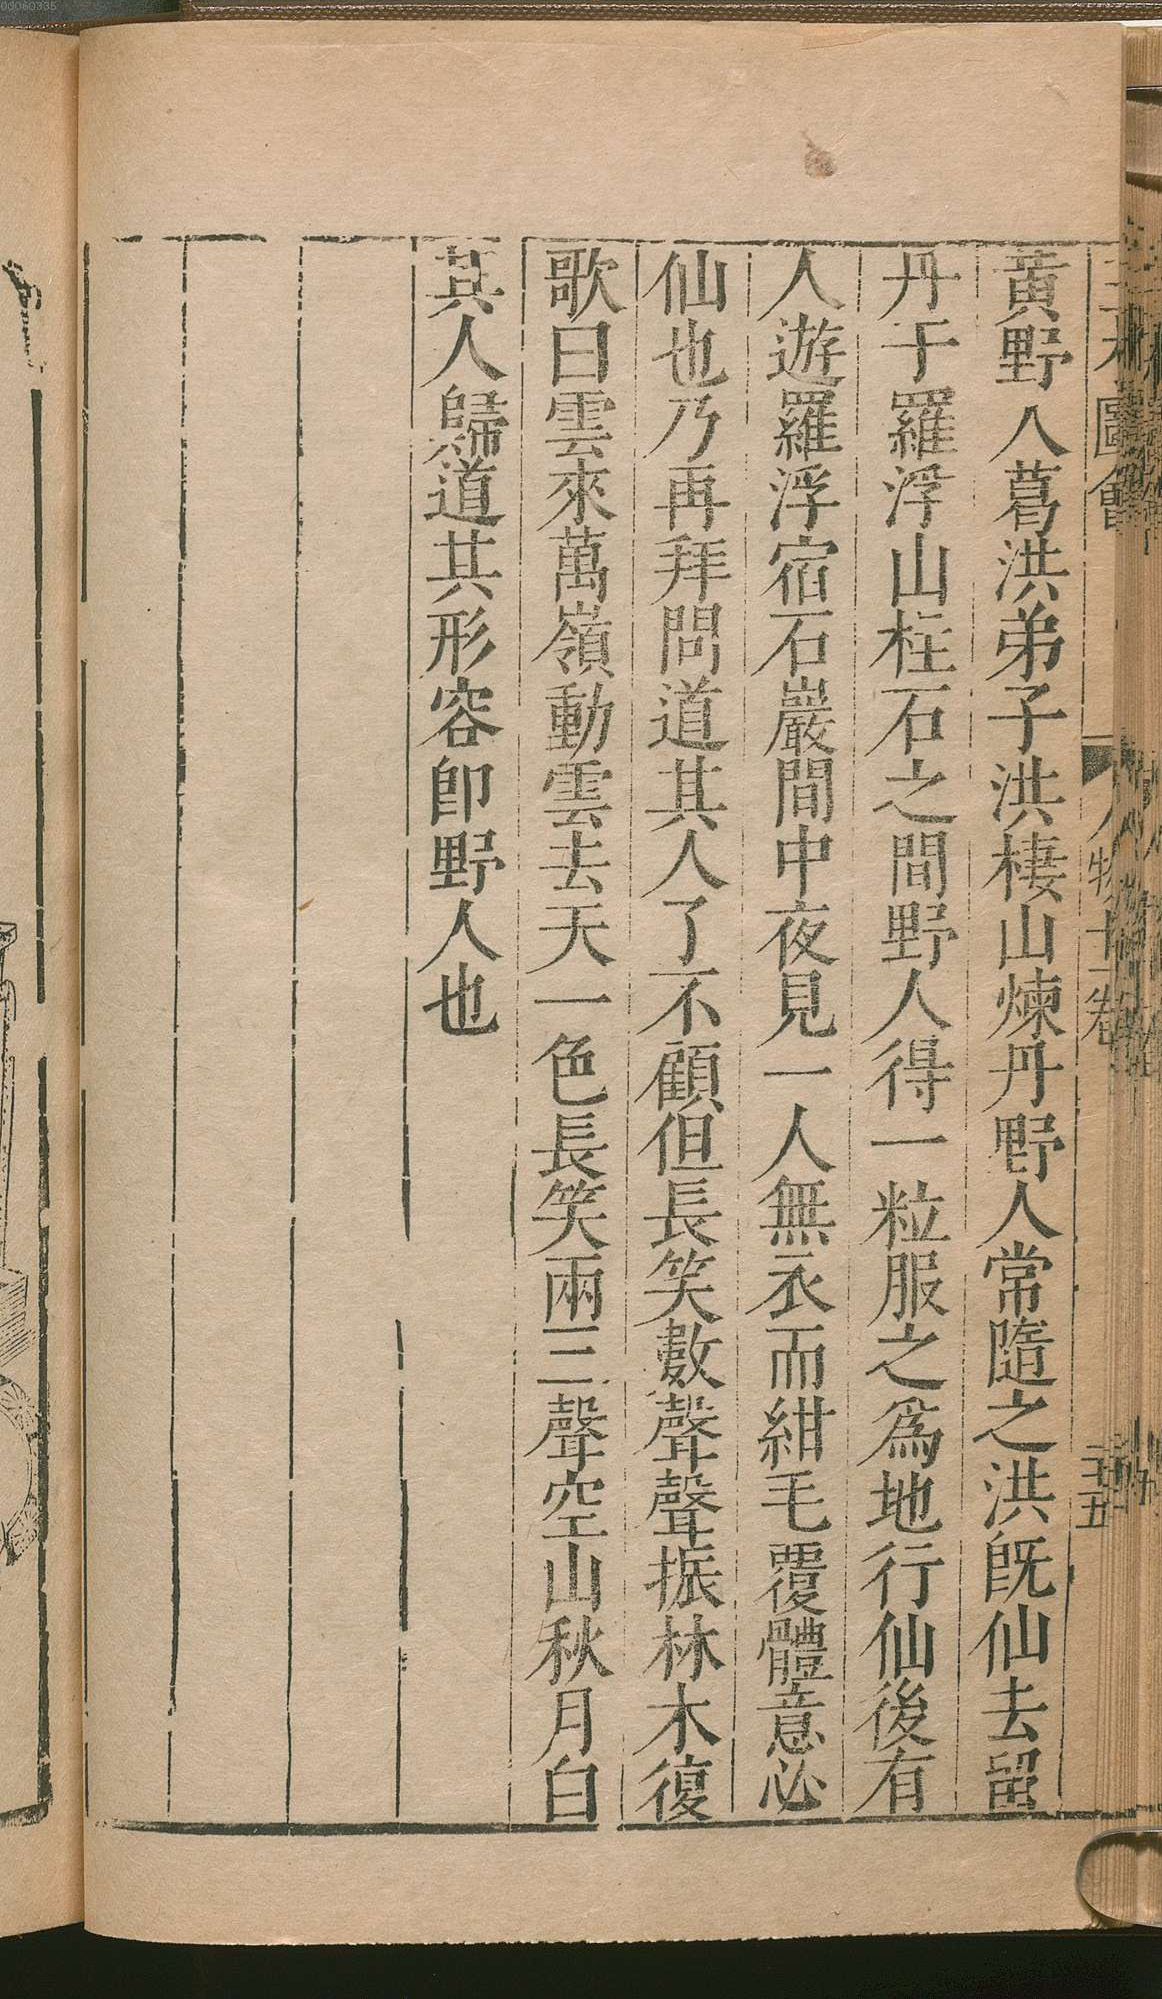 黃野人葛洪弟子洪棲山煉丹野人常隨之洪旣仙去留
丹于羅浮山柱石之間野人得一粒服之爲地行仙後有
人遊羅浮宿石巖間中夜見一人無衣而紺毛覆體意必
仙也乃再拜問道其人了不顧但長笑數聲聲振林木復
歌曰雲來萬嶺動雲去天一色長笑兩三聲空山秋月白
其人歸道其形容卽野人也
圖會
人物十
卷
三十五
00060335